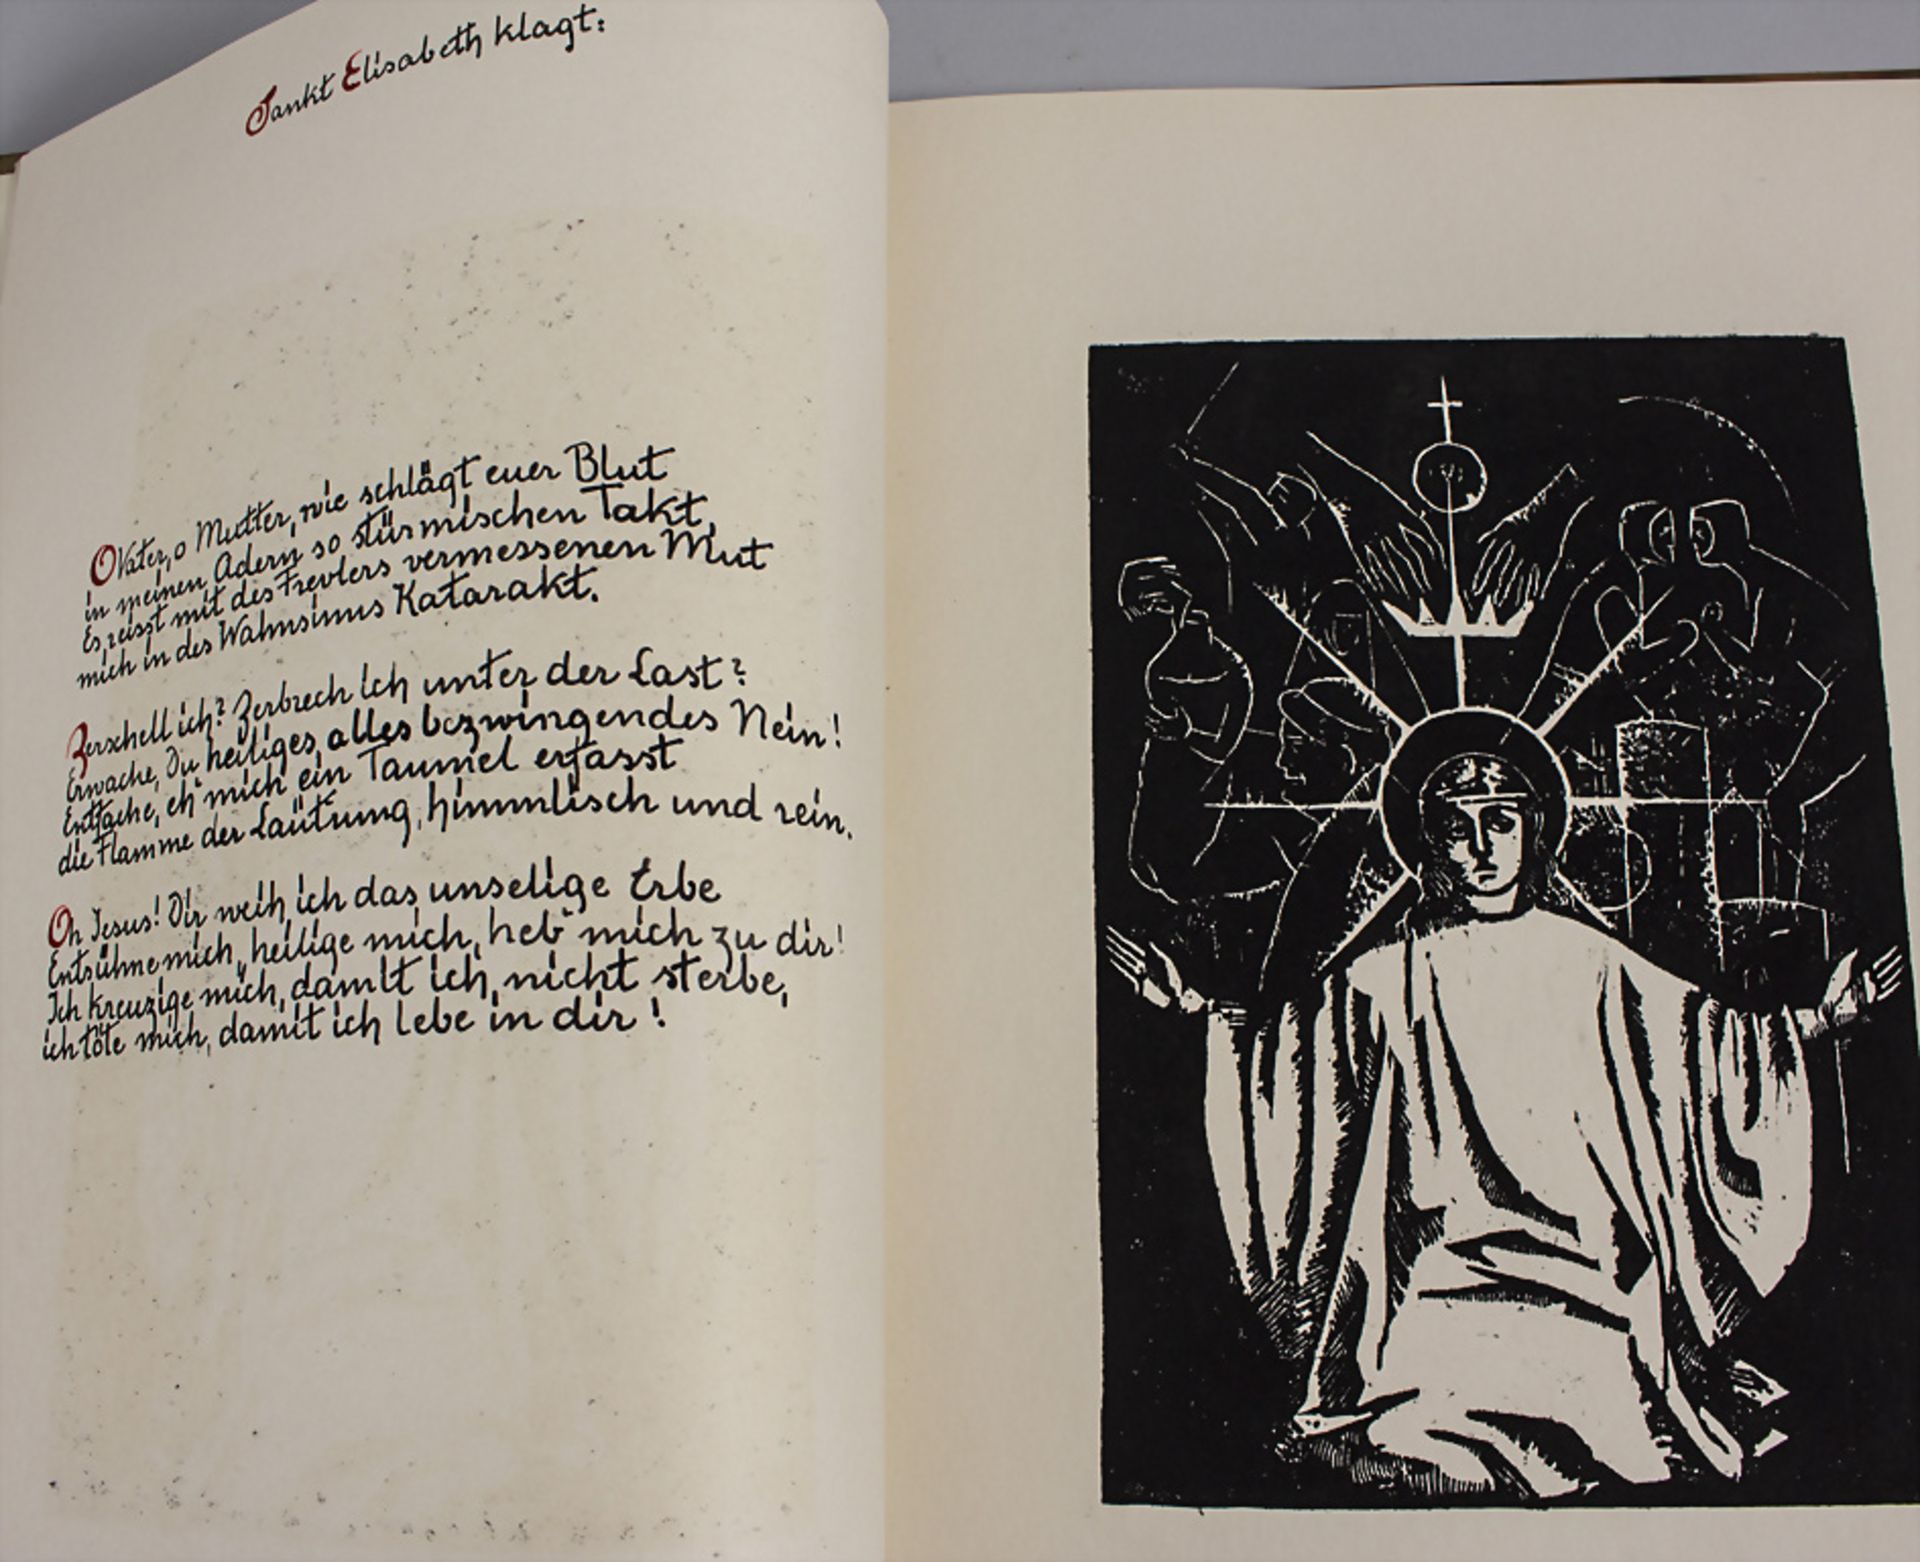 Sankt Elisabeth klagt:
O Vater, o Mutter, wie schlägt euer Blut
in meinen Adern so stürmischen Takt,
Es reisst mit des Frevlers vermessenen Mut
mich in des Wahnsinns Katarakt.
Zerschell ich? Zerbrech ich unter der Last?
Erwache, Du heiliges, alles bezwingendes Nein!
Entfache, eh' mich ein Taumel erfasst
die Flamme der Läut'rung, himmlisch und rein.
Oh Jesus! Dir weih ich das unselige Erbe
Entsühne mich, heilige mich, heb' mich zu dir!
Ich kreuzige mich, damit ich nicht sterbe,
ich töte mich, damit ich lebe in dir!